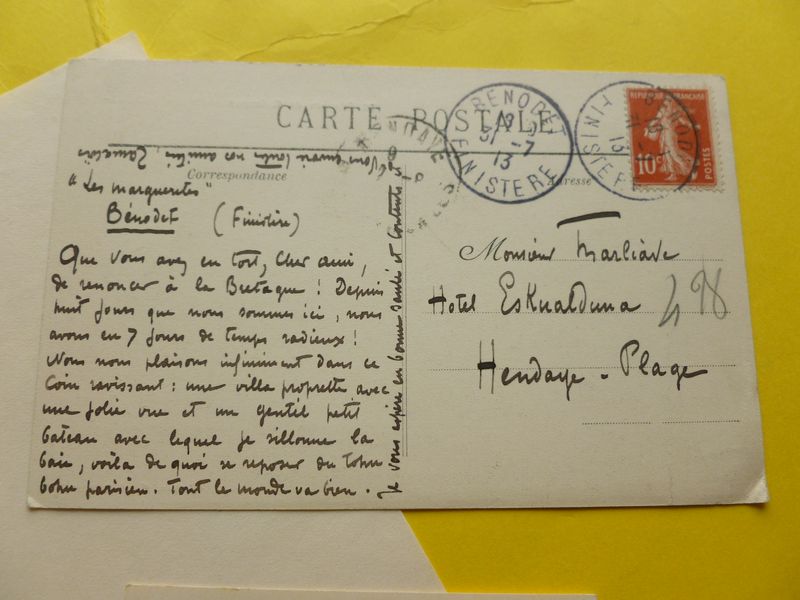 CARTE POSTALE
Correspondance
Adresse
"Les marguerites"
Bénodet (Finistère)
Que vous avez eu tort, cher ami,
de renoncer à la Bretagne ! Depuis
huit jours que nous sommes ici, nous
avons eu 7 jours de temps radieux !
Nous nous plaisons infiniment dans ce
coin ravissant : une villa proprette avec
une jolie vue et un gentil petit
bateau avec lequel je sillonne la
baie, voilà de quoi se reposer du tohu
bohu parisien. Tout le monde va bien.
Je vous espère en bonne santé et content et
vous envoie toutes nos amitiés,
Monsieur Marliave
Hotel Eskualduna
Hendaye - Plage
498
BENODET
31 -7
13
FINISTERE
BENODET
FINISTERE
HENDAYE
REPUBLIQUE FRANÇAISE
10c
POSTES